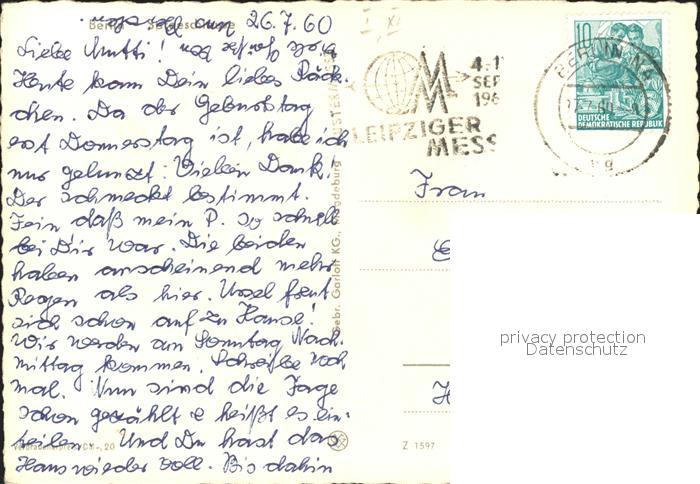 26.7.60
Liebe Mutti!
Heute kam Dein liebes Päck-
chen. Da der Geburtstag
erst Donnerstag ist, habe ich
nur gelunzt! Vielen Dank!
Der schmeckt bestimmt.
Fein daß mein P. so schnell
bei Dir war. Die beiden
haben anscheinend mehr
Regen als hier. Ursel freut
sich schon auf zu Hause!
Wir werden am Sonntag Nach-
mittag kommen. Schreibe noch
mal. Nun sind die Tage
schon gezählt & heißt es ein-
teilen. Und Du hast das
Haus wieder voll. Bis dahin
Berlin
Gebr. Garloff KG., Magdeburg
Z 1597
LEIPZIGER
MESS
4.-1
SEP
196
10
DEUTSCHE
DEMOKRATISCHE REPUBLIK
BERLIN N4
Frau
privacy protection
Datenschutz